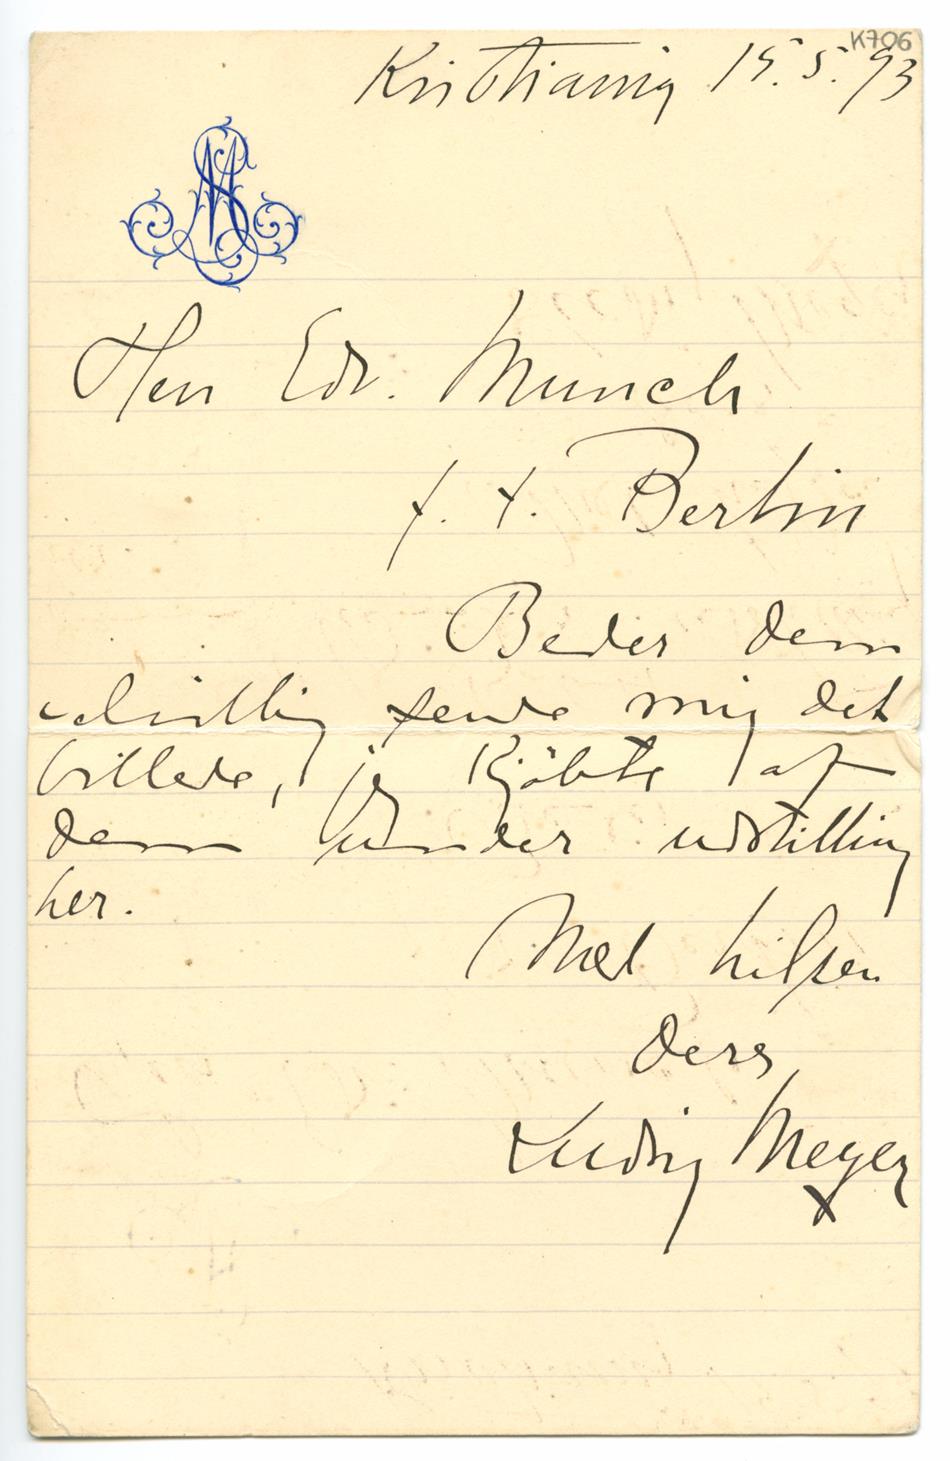 K706
Kristiania 15.5.93
Herr Edv. Munch
f. t. Berlin
Bedes dem
velvilligst sende mig det
billede, jeg kjöbte af
dem under udstilling
her.
Med hilsen
deres
Ludvig Meyer